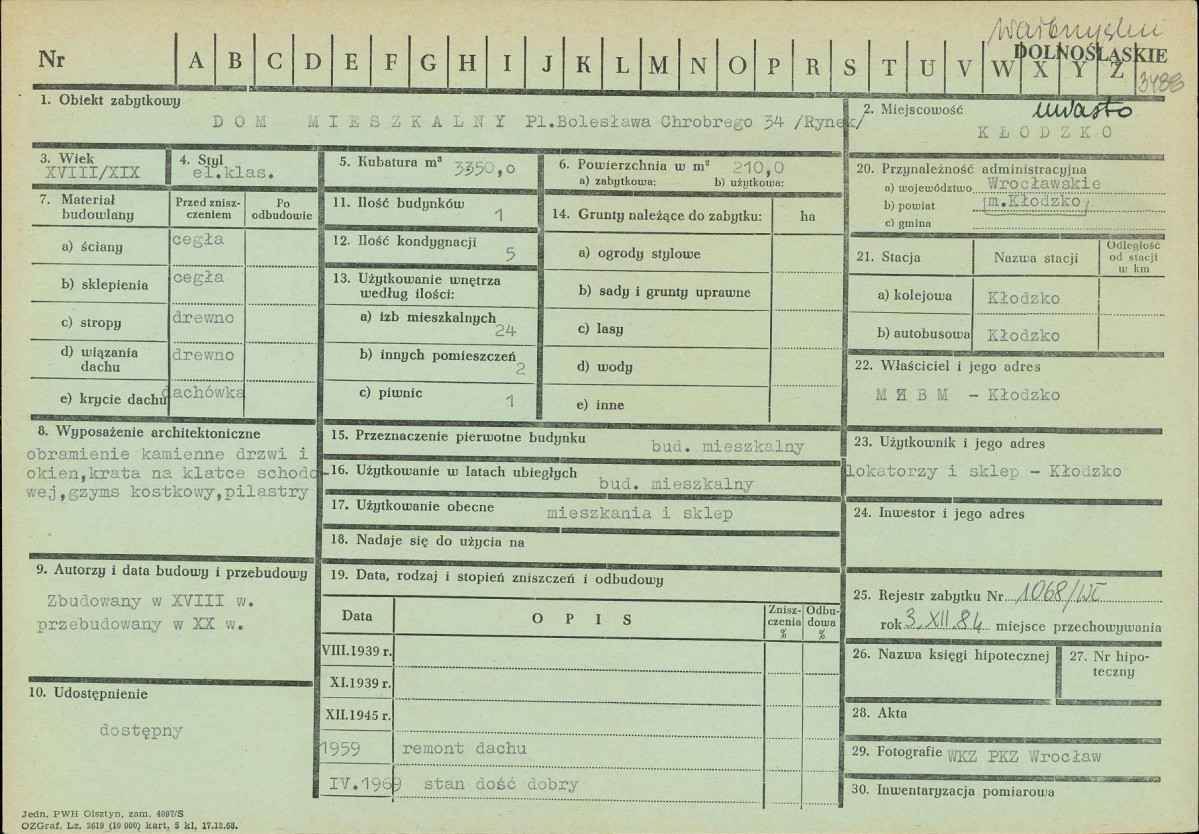 Wałbrzyskie
Nr A B C D E F G H I J K L M N O P R S T U V W X Y Z DOLNOŚLĄSKIE
3488
1. Obiekt zabytkowy
DOM MIESZKALNY Pl.Bolesława Chrobrego 34 /Rynek/
2. Miejscowość miasto
KŁODZKO
3. Wiek
XVIII/XIX
4. Styl
el.klas.
5. Kubatura m³ 3350,0
6. Powierzchnia w m² 210,0
a) zabytkowa: b) użytkowa:
20. Przynależność administracyjna
a) województwo Wrocławskie
b) powiat m.Kłodzko
c) gmina
7. Materiał budowlany
Przed zniszczeniem
Po odbudowie
a) ściany cegła
b) sklepienia cegła
c) stropy drewno
d) wiązania dachu drewno
e) krycie dachu dachówka
11. Ilość budynków 1
12. Ilość kondygnacji 5
13. Użytkowanie wnętrza
według ilości:
a) izb mieszkalnych 24
b) innych pomieszczeń 2
c) piwnic 1
14. Grunty należące do zabytku: ha
a) ogrody stylowe
b) sady i grunty uprawne
c) lasy
d) wody
e) inne
21. Stacja Nazwa stacji Odległość od stacji w km
a) kolejowa Kłodzko
b) autobusowa Kłodzko
22. Właściciel i jego adres
MZBM - Kłodzko
8. Wyposażenie architektoniczne
obramienie kamienne drzwi i
okien,krata na klatce schodo-
wej,gzyms kostkowy,pilastry
15. Przeznaczenie pierwotne budynku bud. mieszkalny
16. Użytkowanie w latach ubiegłych bud. mieszkalny
17. Użytkowanie obecne mieszkania i sklep
18. Nadaje się do użycia na
23. Użytkownik i jego adres
lokatorzy i sklep - Kłodzko
24. Inwestor i jego adres
9. Autorzy i data budowy i przebudowy
Zbudowany w XVIII w.
przebudowany w XX w.
10. Udostępnienie
dostępny
19. Data, rodzaj i stopień zniszczeń i odbudowy
Data OPIS Zniszczenia % Odbudowa %
VIII.1939 r.
XI.1939 r.
XII.1945 r.
1959 remont dachu
IV.1969 stan dość dobry
25. Rejestr zabytku Nr 1068/WŁ
rok 3.XII.84 miejsce przechowywania
26. Nazwa księgi hipotecznej
27. Nr hipoteczny
28. Akta
29. Fotografie WKZ PKZ Wrocław
30. Inwentaryzacja pomiarowa
Jedn. PWH Olsztyn, zam. 4097/S
OZGraf. Lz. 2619 (10 000) kart. 5 kl, 17.12.68.